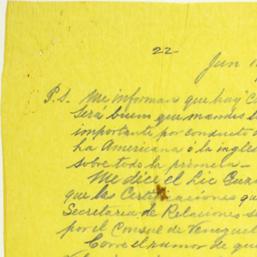 22-
Jun 1
P.S. Me informan que hay
Será buem que mandes l
importante por conducto
La Americana ó la ingles
sobre todo la primera-
Me dice el Lic
que las Certificaciones qu
Secretaria de Relaciones s
por el Consul de Venezuel
Corre el rumor de qu